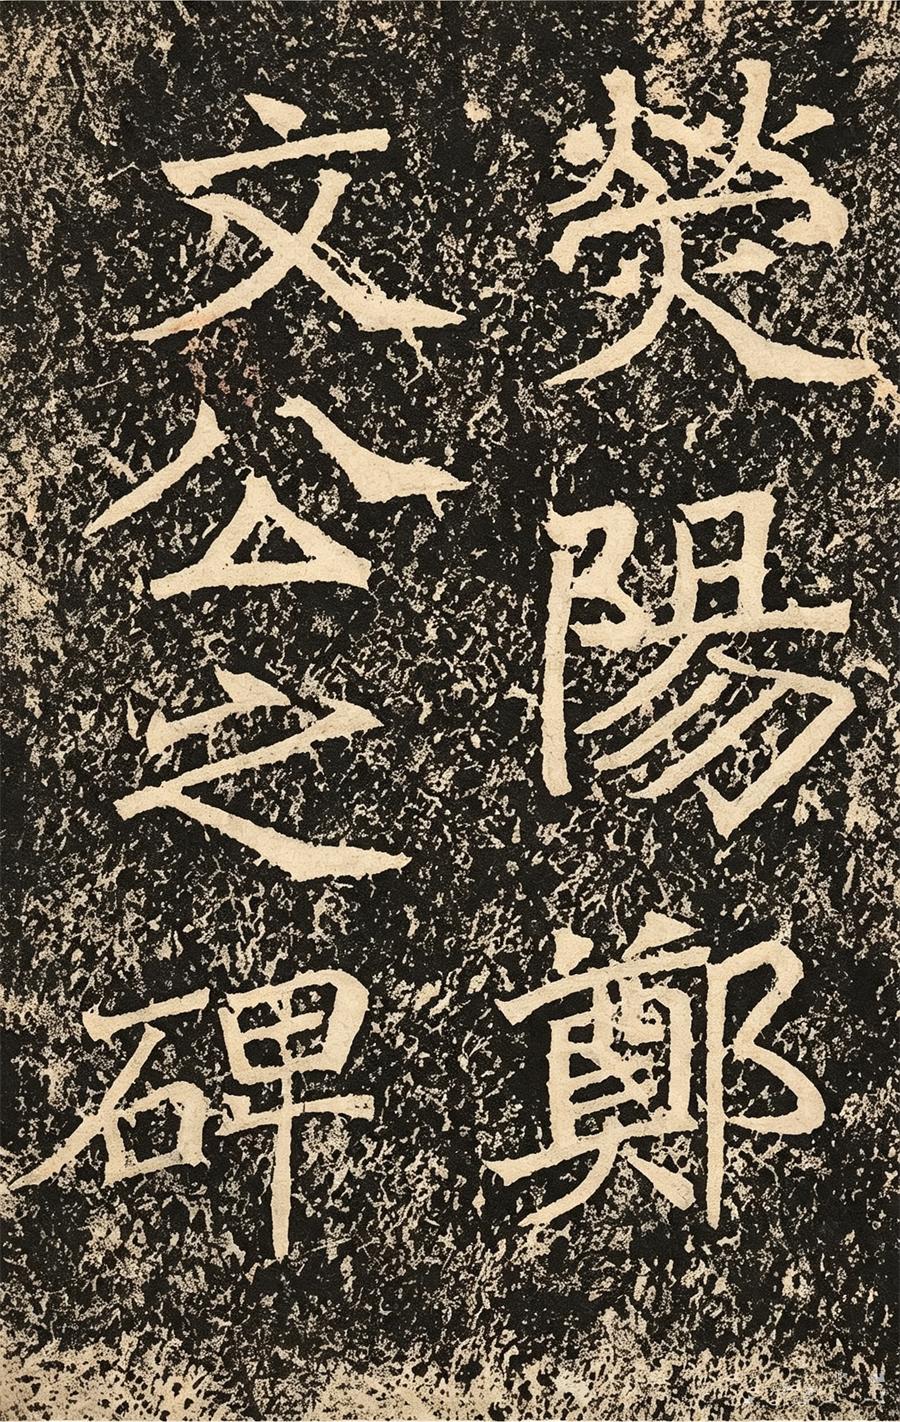 熒陽鄭
文公之碑